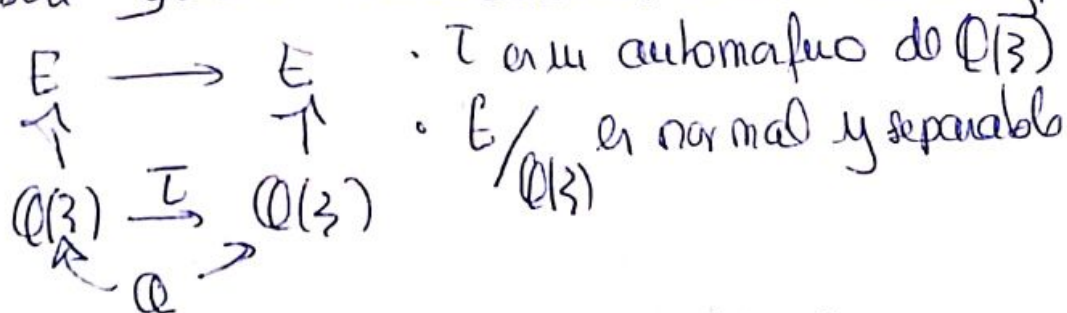 E ⟶ E · τ es un automorfismo de ℚ(ξ)
↑ ↑ · E/ℚ(ξ) es normal y separable
ℚ(ξ) τ⟶ ℚ(ξ)
ℚ